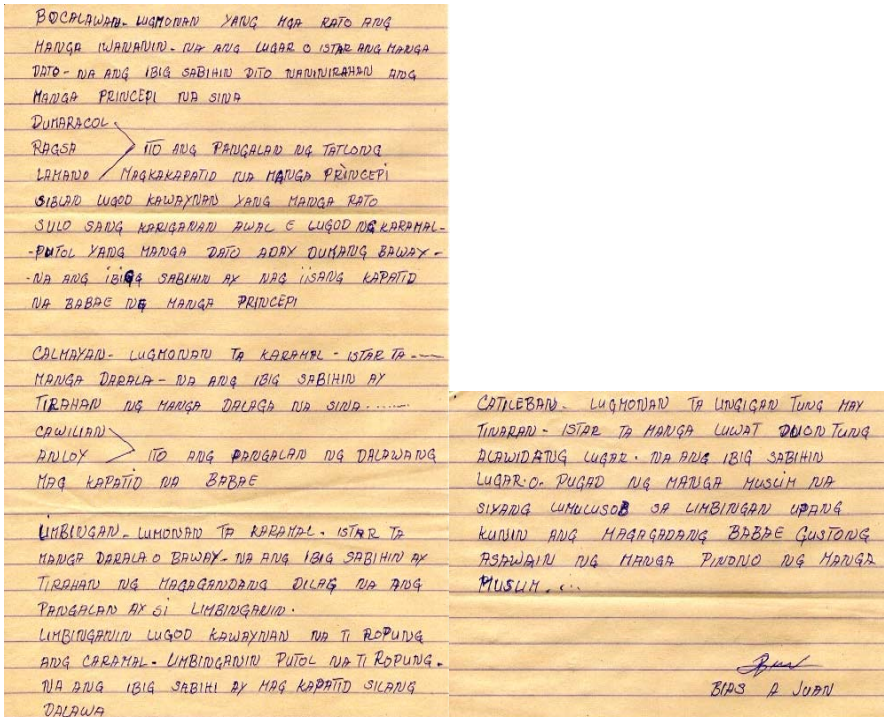 BOCALAWAN- LUGMONAN YANG MGA RATO ANG
MANGA IWANANIN- NA ANG LUGAR O ISTAR ANG MANGA
DATO- NA ANG IBIG SABIHIN DITO NANINIRAHAN ANG
MANGA PRINCEPI NA SINA
DUMARACOL
RAGSA ITO ANG PANGALAN NG TATLONG
LAMANO MAGKAKAPATID NA MANGA PRINCEPI
SIBLAN LUGOD KAWAYNAN YANG MANGA RATO
SULO SANG KARIGANAN AWAL E LUGOD NG KARAMAL-
-PUTOL YANG MANGA DATO ADAY DUMANG BAWAY-
-NA ANG IBIGG SABIHIN AY NAG IISANG KAPATID
NA BABAE NG MANGA PRINCEPI
CALMAYAN- LUGMONAN TA KARAMAL- ISTAR TA ----
MANGA DARALA- NA ANG IBIG SABIHIN AY
TIRAHAN NG MANGA DALAGA NA SINA......
CAWILIAN
ANLOY ITO ANG PANGALAN NG DALAWANG
MAG KAPATID NA BABAE
LIMBINGAN- LUMONAN TA KARAMAL. ISTAR TA
MANGA DARALA O BAWAY- NA ANG IBIG SABIHIN AY
TIRAHAN NG MAGAGANDANG DILAG NA ANG
PANGALAN AY SI LIMBINGANIN.
LIMBINGANIN LUGOD KAWAYNAN NA TI ROPUNG
ANG CARAMAL- LIMBINGANIN PUTOL NA TI ROPUNG.
NA ANG IBIG SABIHI AY MAG KAPATID SILANG
DALAWA
CATILEBAN- LUGMONAN TA UNGIGAN TUNG MAY
TINARAN- ISTAR TA MANGA LUWAT DUON TUNG
ALAWIDANG LUGAR. NA ANG IBIG SABIHIN
LUGAR.O. PUGAD NG MANGA MUSLIM NA
SIYANG LUMULUSOB SA LIMBINGAN UPANG
KUNIN ANG MAGAGADANG BABAE GUSTONG
ASAWAIN NG MANGA PINONO NG MANGA
MUSLIM....
BIAS A JUAN